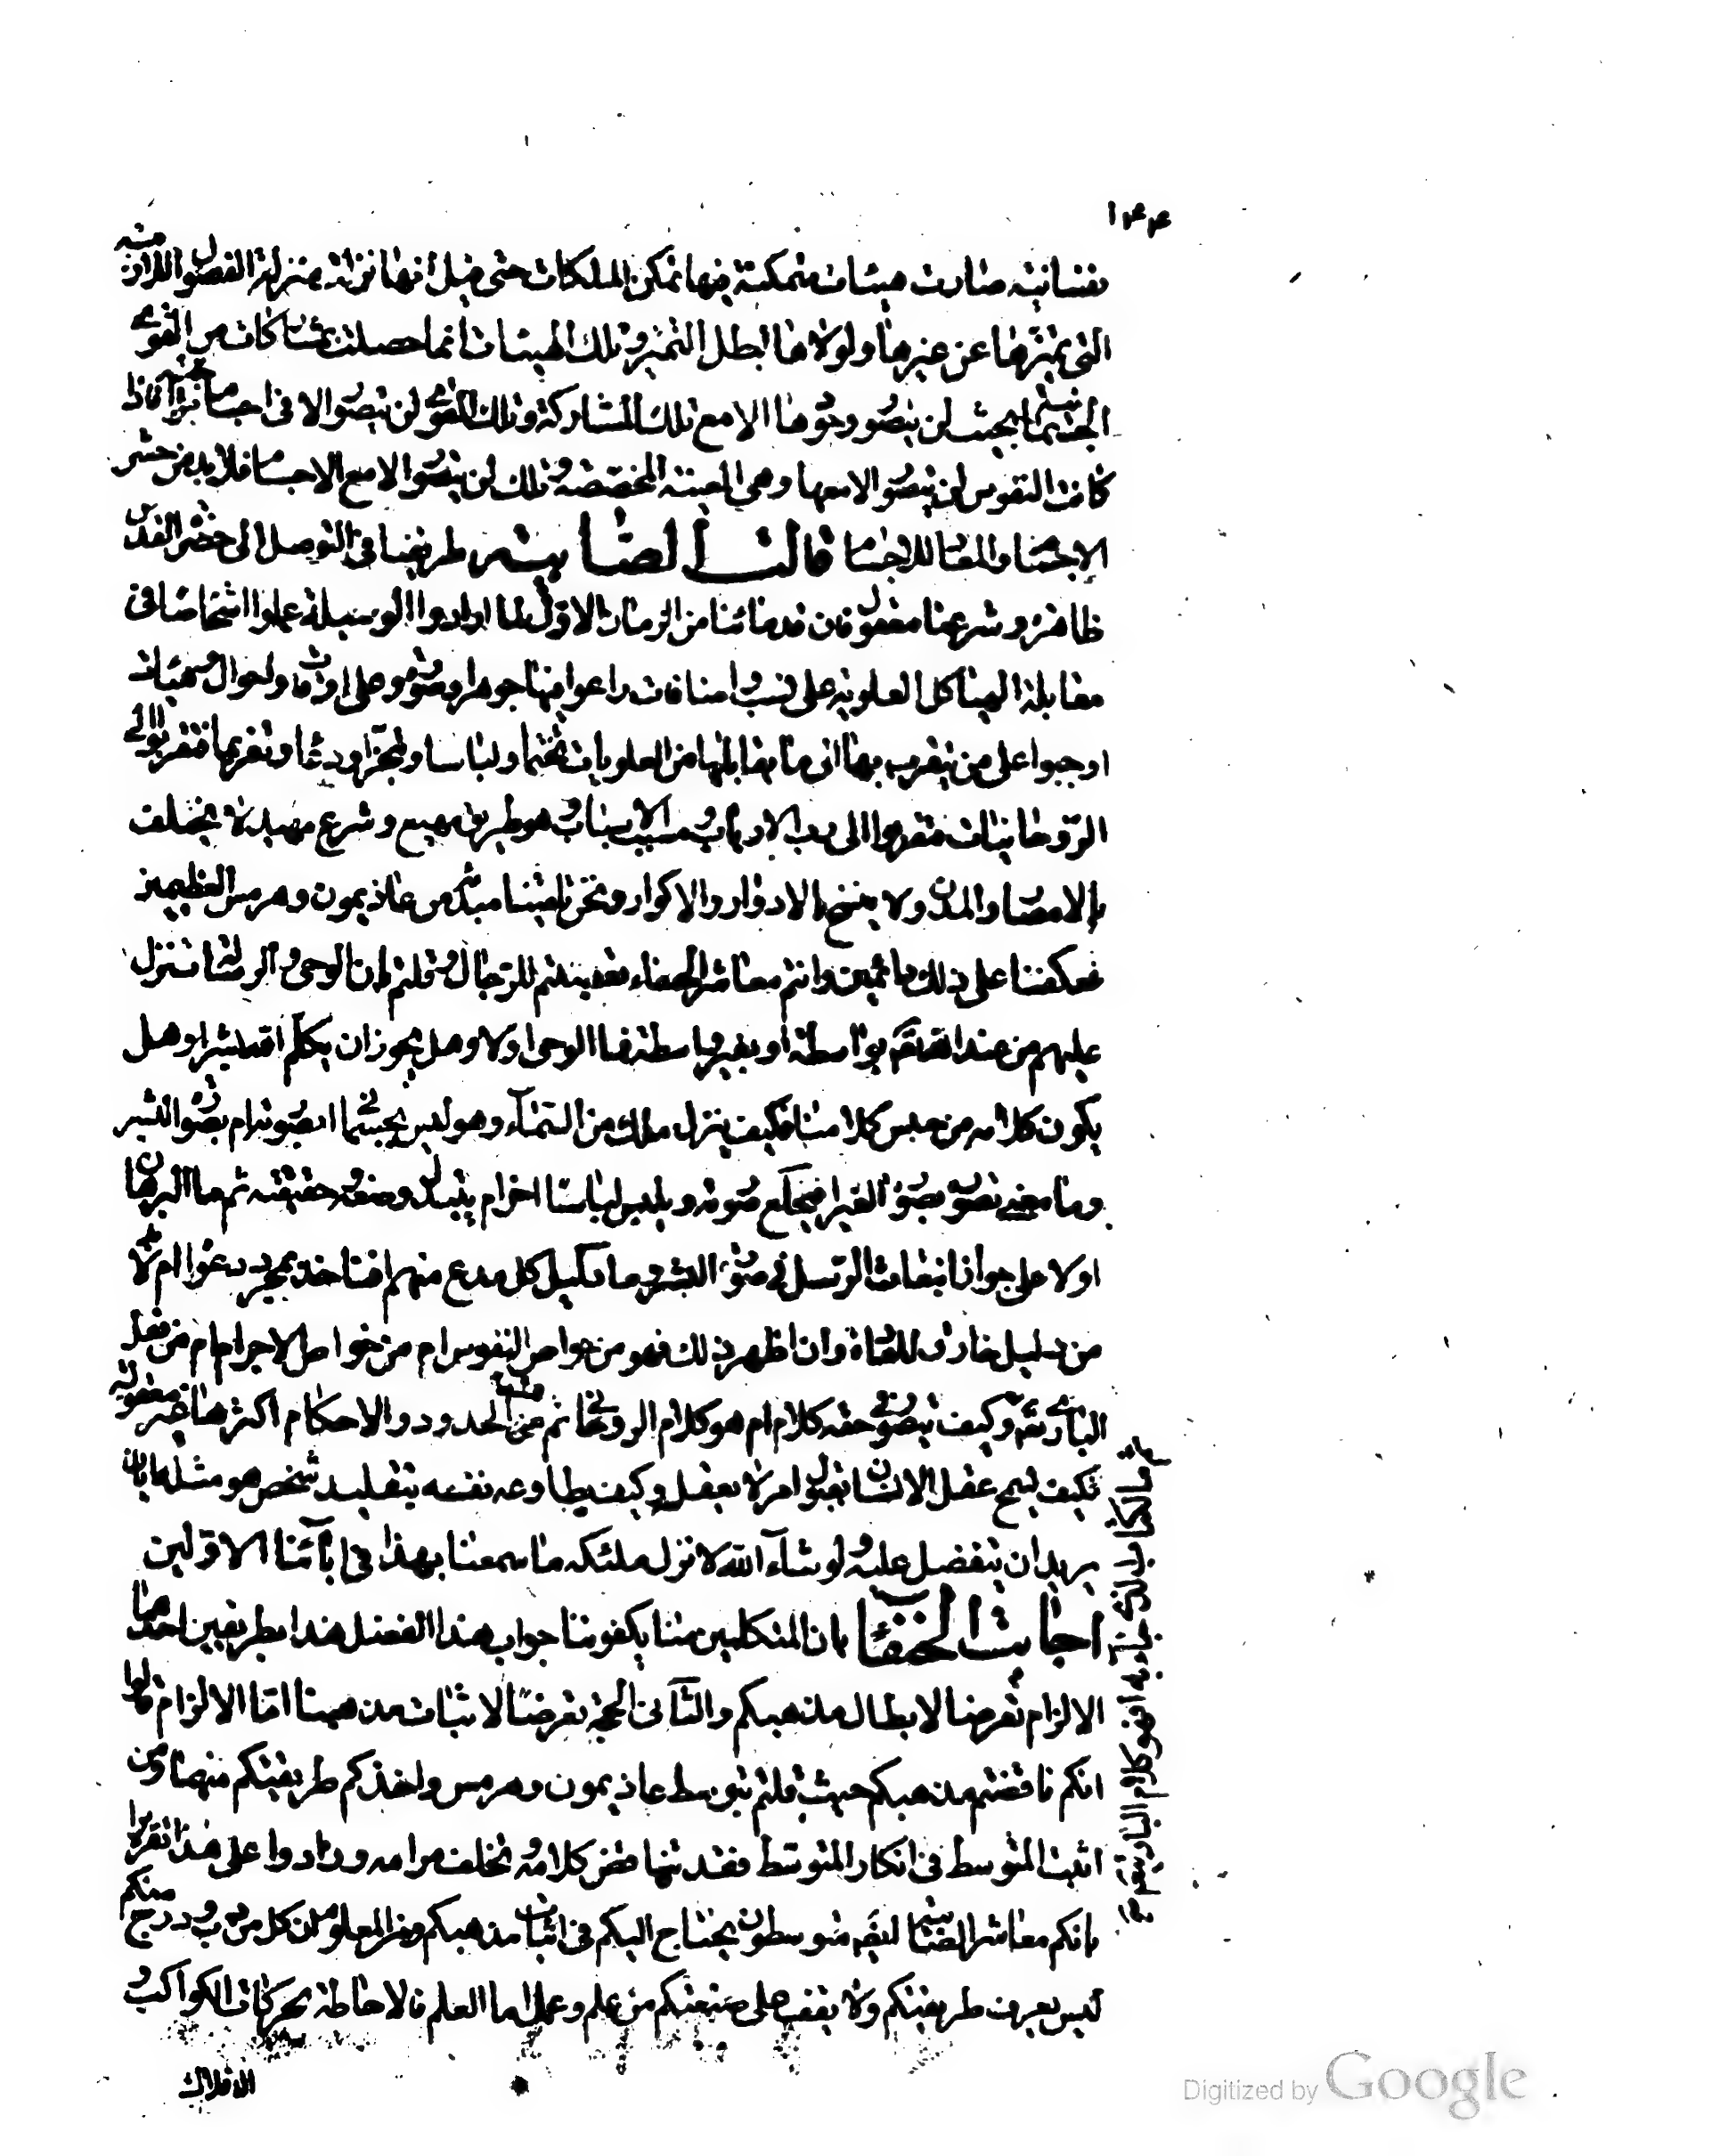 ١٤٤
نفسانية صارت هيئات متمكنة فيها تمكن الملكات حتى قيل انها نزلت بمنزلة الفصول اللازمة
التى تميزها عن غيرها ولولاها لبطل التميز وتلك الهيئات انما حصلت بمشاركات من القوى
الجسمانية بحيث لن يتصور وجودها الا مع تلك المشاركة وتلك القوى لن يتصور الا فى اجسام مزاجية فاذا
كانت النفوس لن يتصور الا معها وهى المعينة المخصصة وتلك لن يتصور الا مع الاجسام فلا بد من حشر
الاجسام والمعاد للاجسام قالت الصابئة طريقنا فى التوصل الى حضرة القدس
ظاهرة وشرعنا معقول فان قدمائنا من الزمان الاول لما ارادوا الوسيلة عملوا اشخاصا فى
مقابلة الهياكل العلوية على نسب واضافات راعوا فيها جوهرا وصورة وعلى اوقات واحوال وهيئات
اوجبوا على من يتقرب بها الى ما يقابلها من العلويات تختما ولباسا وتبخرا ودعاء وتعزيما فتقربوا الى
الروحانيات فتقربوا الى رب الارباب ومسبب الاسباب وهو طريق مهيع وشرع مهيد لا يختلف
بالامصار والمدن ولا ينسخ بالادوار والاكوار ونحن تلقينا مبدأه من عاذيمون وهرمس العظيمين
فعكفنا على ذلك دائمين وانتم معاشر الحنفاء تعصبتم للرجال وقلتم بان الوحى والرسالة تنزل
عليهم من عند الله تعالى بواسطة او بغير واسطة فما الوحى اولا وهل يجوز ان يكلم الله بشرا وهل
يكون كلامه من جنس كلامنا وكيف ينزل ملك من السماء وهو ليس بجسمانى ابصورته ام بصورة البشر
وما معنى تصوره بصورة الغير افيخلع صورته ويلبس لباسا اخر ام يتبدل وضعه وحقيقته ثم ما البرهان
اولا على جواز انبعاث الرسل فى صورة البشر وما دليل كل مدع منهم افناخذ بمجرد دعواه ام لا بد
من دليل خارق للعادة وان اظهر ذلك فهو من خواص النفوس ام من خواص الاجرام ام من فعل
البارئ تعالى وكيف يتصور فى حقه كلام ام هو كلام الروحانى ثم من الحدود والاحكام اكثرها غير معقولة
فكيف يسمح عقل الانسان بقبول امر لا يعقل وكيف يطاوعه نفسه بتقليد شخص هو مثله ابان
يريد ان يتفضل عليه ولو شاء الله لانزل ملئكه ما سمعنا بهذا فى ابآئنا الاولين
اجابت الحنفاء بان المتكلمين منا يكفوننا جواب هذا الفصل هذا بطريقين احدهما
الالزام تعرضا لابطال مذهبكم والثانى الحجة تعرضا لاثبات مذهبنا اما الالزام قالوا
انكم ناقضتم مذهبكم حيث قلتم بتوسط عاذيمون وهرمس واخذكم طريقتكم منهما ومن
اثبت المتوسط فى انكار المتوسط فقد تناقض كلامه وتخلف مرامه وزادوا على هذا تقريرا
بانكم معاشر الصابئة ايضا متوسطون يحتاج اليكم فى اثبات مذهبكم ومن المعلوم ان كل من دب ودرج منكم
ليس يعرف طريقتكم ولا يقف على صنعتكم من علم وعمل اما العلم فالاحاطة بحركات الكواكب و
الافلاك
ما الكتاب الذى جاء به اهو كلام البارئ تعالى
Digitized by Google